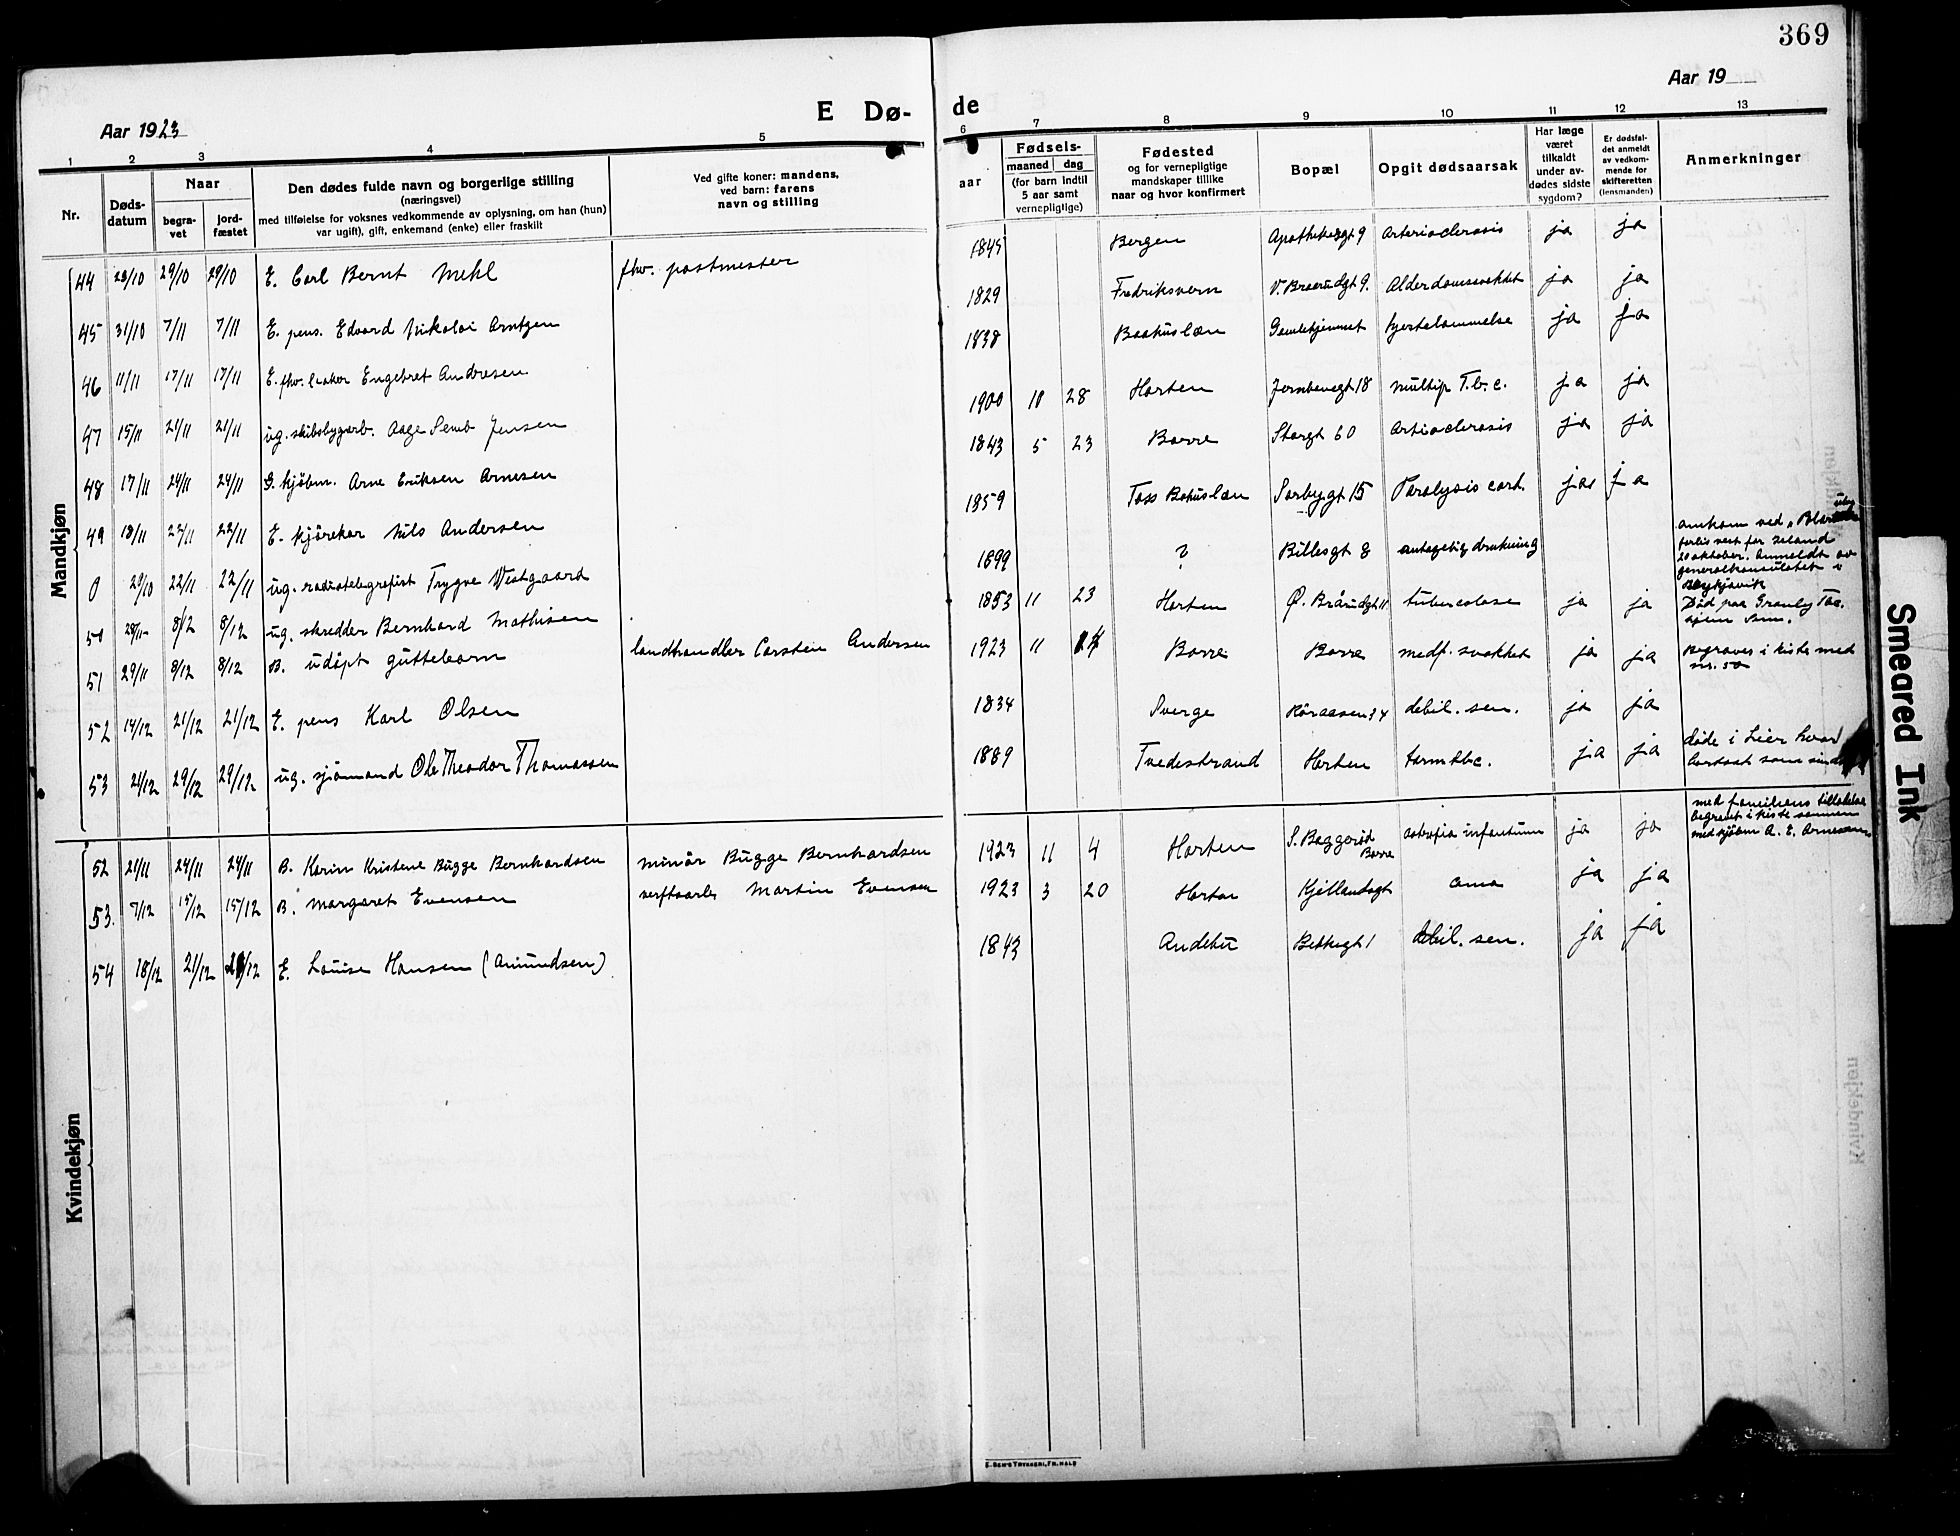 369
Aar 1923
E Dø-
de
Aar 19
1 2 3 4 5 6 7 8 9 10 11 12 13
Nr.
Døds-
datum
Naar
begra-
vet
jord-
fæstet
Den dødes fulde navn og borgerlige stilling
(næringsvei)
med tilføielse for voksnes vedkommende av oplysning, om han (hun)
var ugift), gift, enkemand (enke) eller fraskilt
Ved gifte koner: mandens,
ved barn: farens
navn og stilling
aar
Fødsels-
maaned dag
(for barn indtil
5 aar samt
vernepligtige)
Fødested
og for vernepligtige
mandskaper tillike
naar og hvor konfirmert
Bopæl
Opgit dødsaarsak
Har læge
været
tilkaldt
under av-
dødes sidste
sygdom?
Er dødsfal-
det anmeldt
av vedkom-
mende for
skifteretten
(lensmanden)
Anmerkninger
Mandkjøn
44 23/10 29/10 29/10 E. Carl Bernt Mehl fhv. postmester 1845 Bergen Apothekergt 9 Arteriosclerosis ja ja
45 31/10 7/11 7/11 E. pens. Edvard Nikolai Arntzen 1829 Fredriksvern V. Braarudgt 9. Alderdomssvakhet ja ja
46 11/11 17/11 17/11 E. fhv. Engebret Andresen 1838 Baahuslæn Gamlehjemmet hjertelammelse ja ja
47 15/11 21/11 21/11 ug. skibsbyggerarb. Aage Semb Jensen 1900 10 28 Horten Jernbanegt 18 multip T.b.c. ja ja
48 17/11 24/11 24/11 G. kjøbm. Arne Eriksen Arnesen 1843 5 23 Borre Storgt 60 Artiosclerosis ja ja
49 18/11 22/11 22/11 E. kjørekar Nils Andersen 1859 Bohuslæn Sorbygt 15 Paralysis cord. ja ja
0 20/10 22/11 22/11 ug. radiotelegrafist Trygve Vestgaard 1899 ? Billesgt 8 antagelig drukning omkom ved
forlis vest for Island
20 oktober. Anmeldt av
generalkonsulatet i
Reykjavik
50 28/11 8/12 8/12 ug. skredder Bernhard Mathisen 1853 11 23 Horten Ø. Brårudgt 11 tuberculose ja ja Død paa Granly
51 29/11 8/12 8/12 B. udøpt guttebarn landhandler Carsten Andersen 1923 11 Borre Borre medf. svakhet ja ja Begraves i kiste med
nr. 50
52 14/12 21/12 21/12 E. pens Karl Olsen 1834 Sverge debil. sen. ja ja
53 21/12 29/12 29/12 ug. sjømand Ole Theodor Thomassen 1889 Tvedestrand Horten tarmtbc. ja ja døde i Lier hvor
Kvindekjøn
52 21/11 24/11 24/11 B. Karin Kristine Bugge Bernhardsen minør Bugge Bernhardsen 1923 11 4 Horten S. Baggerød
Borre
astrofia infantum ja ja med familiens tilladelse
begravet i kiste sammen
med kjøbm A. E. Arnesen
53. 7/12 15/12 15/12 B. Margaret Evensen verftsarb. Martin Evensen 1923 3 20 Horten Kjellandsgt ja ja
54 18/12 21/12 21/12 E. Louise Hansen (Amundsen) 1843 Andebu 1 debil. sen. ja ja
Smeared Ink